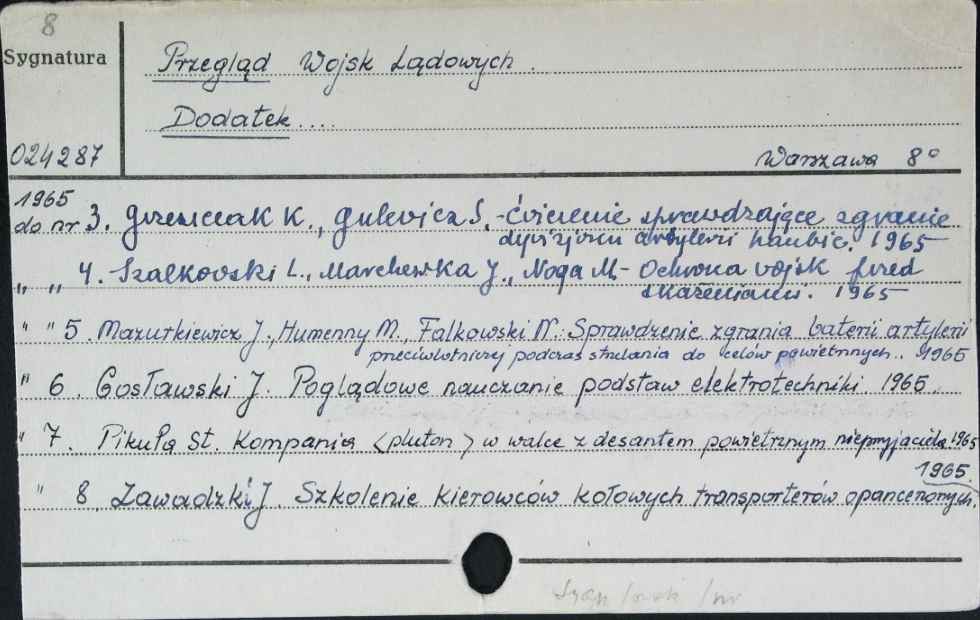 8
Sygnatura
Przegląd Wojsk Lądowych.
Dodatek....
024287
Warszawa 8°
1965
do nr 3. Grzeszczak K., Gulewicz S. - Ćwiczenie sprawdzające zgranie
dywizjonu artylerii haubic. 1965
" " 4. Szałkowski L., Marchewka J., Noga M. - Ochrona wojsk przed
skażeniami. 1965
" " 5. Mazurkiewicz J., Humenny M., Falkowski N.: Sprawdzenie zgrania baterii artylerii
przeciwlotniczej podczas strzelania do celów powietrznych.. 1965
" 6. Gosławski J. Poglądowe nauczanie podstaw elektrotechniki. 1965.
" 7. Pikuła St. Kompania <pluton> w walce z desantem powietrznym nieprzyjaciela. 1965
1965.
" 8 Zawadzki J. Szkolenie kierowców kołowych transporterów opancerzonych.